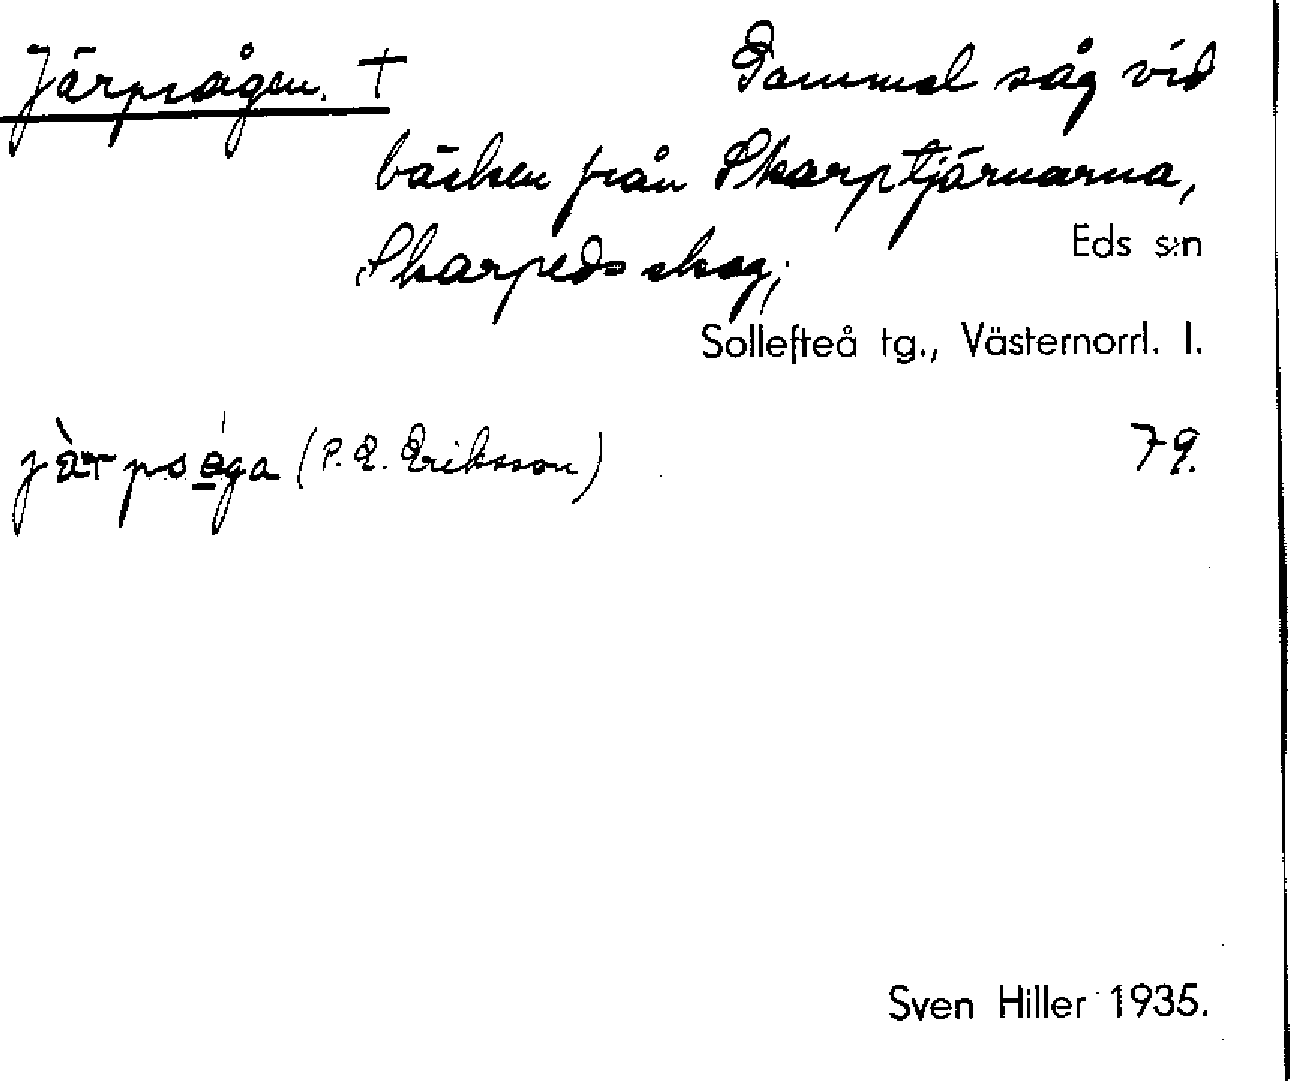 Järpsågen. † Gammal såg vid
bäcken från Skarptjärnarna,
Skarpeds skog;
Eds s:n
Sollefteå tg., Västernorrl. l.
(P. E. Eriksson) 79.
Sven Hiller 1935.